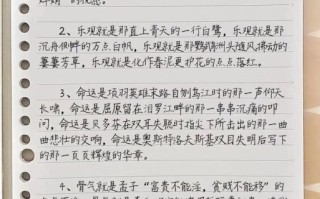 2、乐观就是那直上青天的一行白鹭，乐观就是那
沉舟侧畔的万点白帆，乐观就是那鹦鹉洲头随风拂动的
萋萋芳草，乐观就是化作春泥更护花的点点落红。
3、命途是项羽英雄末路自刎乌江时的那一声仰天
长啸，命途是屈原留在汨罗江畔的那一串串沉痛的叩
问，命途是贝多芬在双耳失聪时指尖下所击出的那一曲
曲悲怆的交响，命途是奥斯特洛夫斯基双目失明后写下
的那一页页辉煌的华章。
4、骨气就是孟子“富贵不能淫，贫贱不能移”的